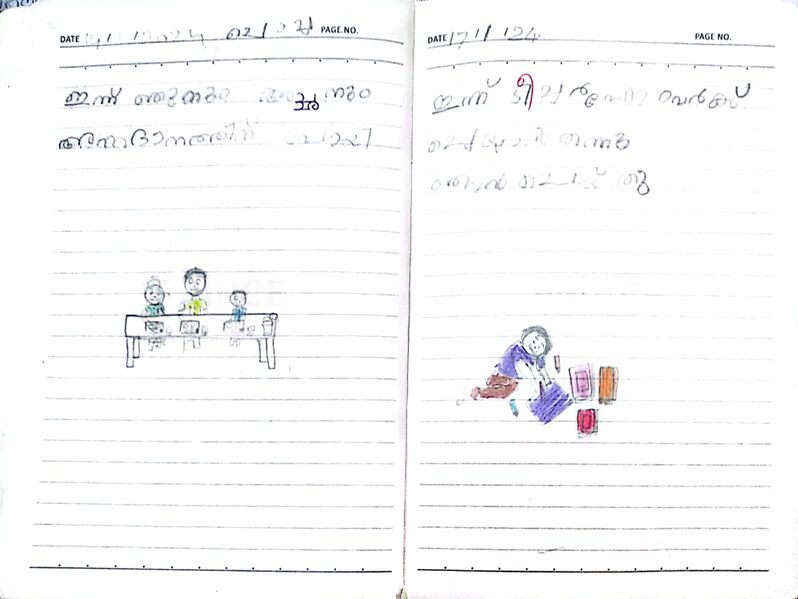 DATE 14/1/2024 ചൊവ്വ PAGE NO.
ഇന്ന് ഞാനും അച്ഛനും
അന്നദാനത്തിന് പോയി
DATE 17/1/24 PAGE NO.
ഇന്ന് ടീച്ചർ ഹോംവർക്ക്
ചെയ്യാൻ തന്നു
ഞാൻ ചെയ്തു